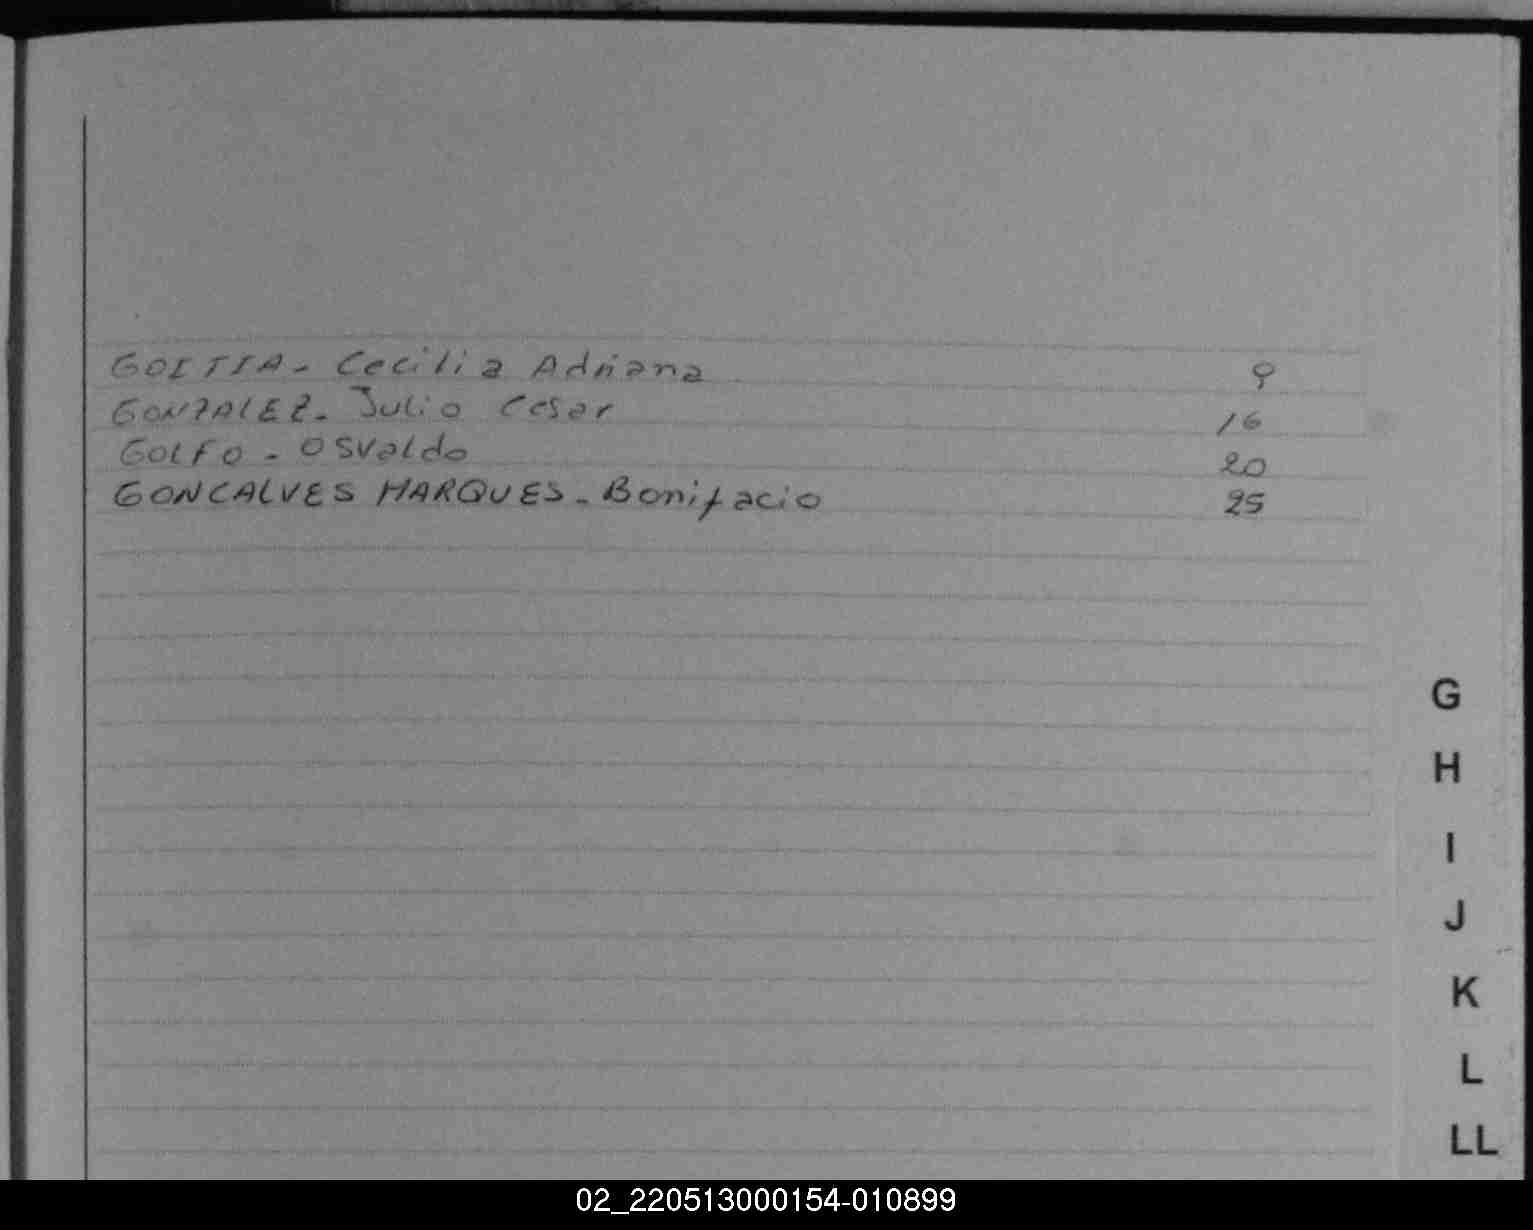 GOITIA - Cecilia Adriana 9
GONZALEZ - Julio Cesar 16
GOLFO - Osvaldo 20
GONCALVES MARQUES - Bonifacio 25
G
H
I
J
K
L
LL
02_220513000154-010899